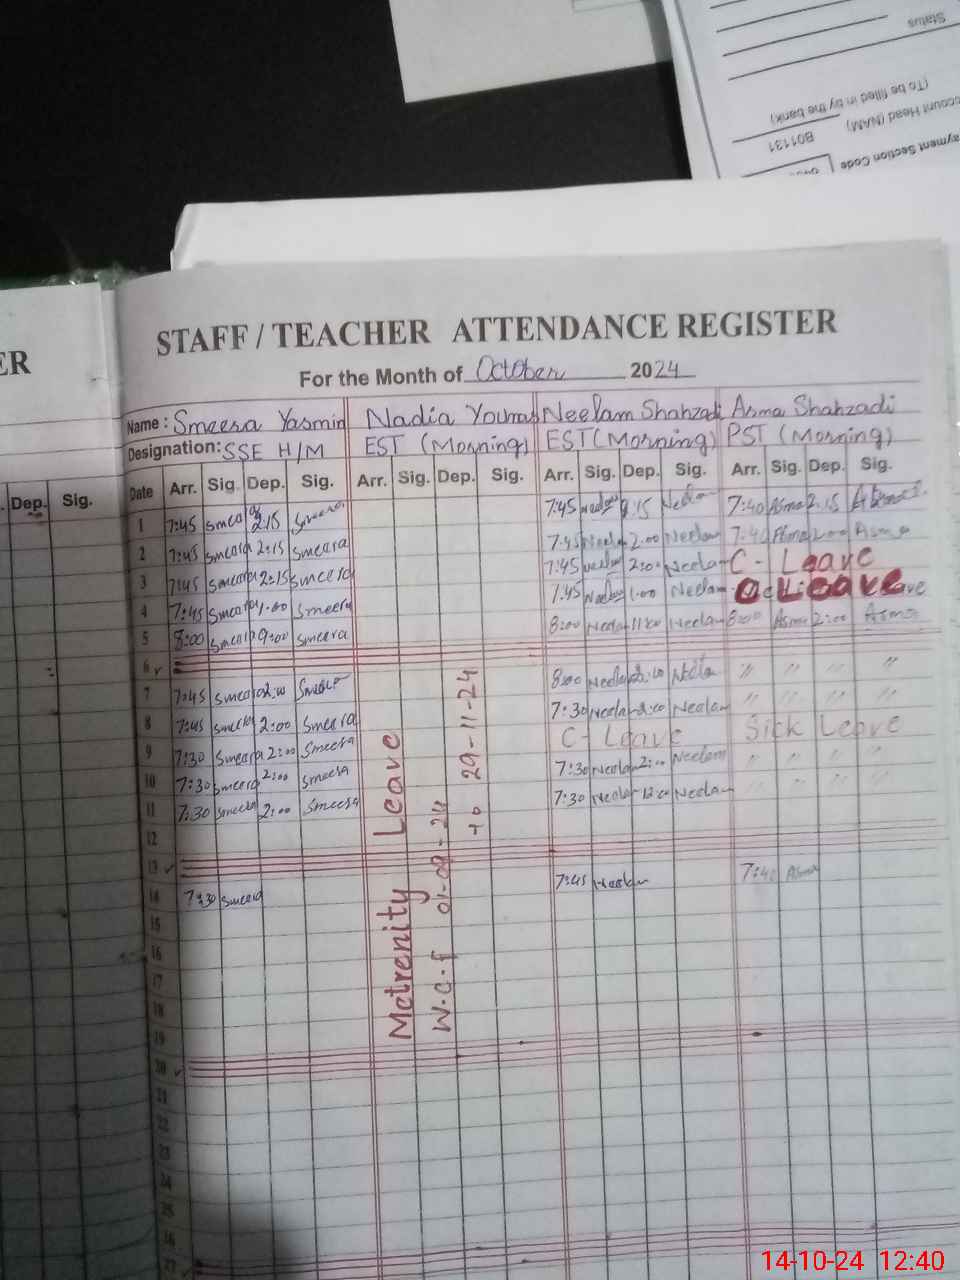 Status
(To be filled in by the bank)
Account Head (NAM) B01131
Payment Section Code
ER
STAFF / TEACHER ATTENDANCE REGISTER
For the Month of October 2024
Name : Smeera Yasmin Nadia Younas Neelam Shahzadi Asma Shahzadi
Designation: SSE H/M EST (Morning) EST (Morning) PST (Morning)
Dep. Sig.
Date Arr. Sig. Dep. Sig. Arr. Sig. Dep. Sig. Arr. Sig. Dep. Sig. Arr. Sig. Dep. Sig.
1 7:45 smeera 2:15 Smeera 7:45 Neelam 2:15 Neelam 7:40 Asma 2:15
2 7:45 smeera 2:15 smeera 7:45 Neelam 2:00 Neelam 7:40 Asma 2:00 Asma
3 7:45 smeera 2:15 smeera 7:45 Neelam 2:00 Neelam C- Leave
4 7:45 smeera 1:00 Smeera 7:45 Neelam 1:00 Neelam Leave
5 8:00 smeera 9:00 smeera 8:00 Neelam 11:00 Neelam 8:00 Asma 2:00 Asma
6
7 7:45 smeera 2:10 Smeera 8:00 Neelam 2:10 Neelam " " " "
8 7:45 smeera 2:00 Smeera 7:30 Neelam 2:00 Neelam " " " "
9 7:30 Smeera 2:00 Smeera C- Leave Sick Leave
10 7:30 smeera 2:00 smeera 7:30 Neelam 2:00 Neelam " " " "
11 7:30 smeera 2:00 Smeera 7:30 Neelam 12:00 Neelam " " " "
12
13
14 7:30 smeera 7:45 Neelam 7:40 Asma
15
16
17
18
19
20
21
22
23
24
25
26
27
Metrenity Leave
W.C.F 01-09-24 to 29-11-24
14-10-24 12:40